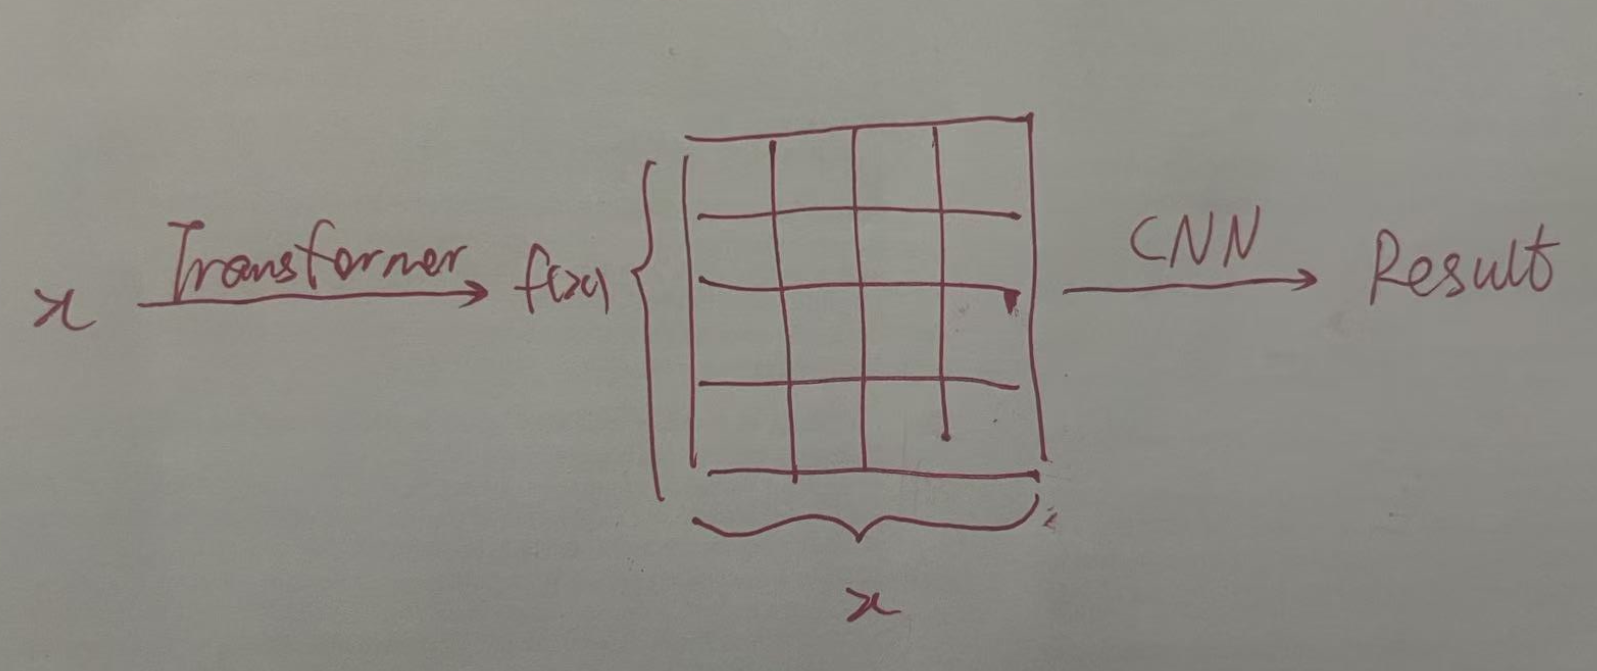 x Transformer f(x) CNN Result
x